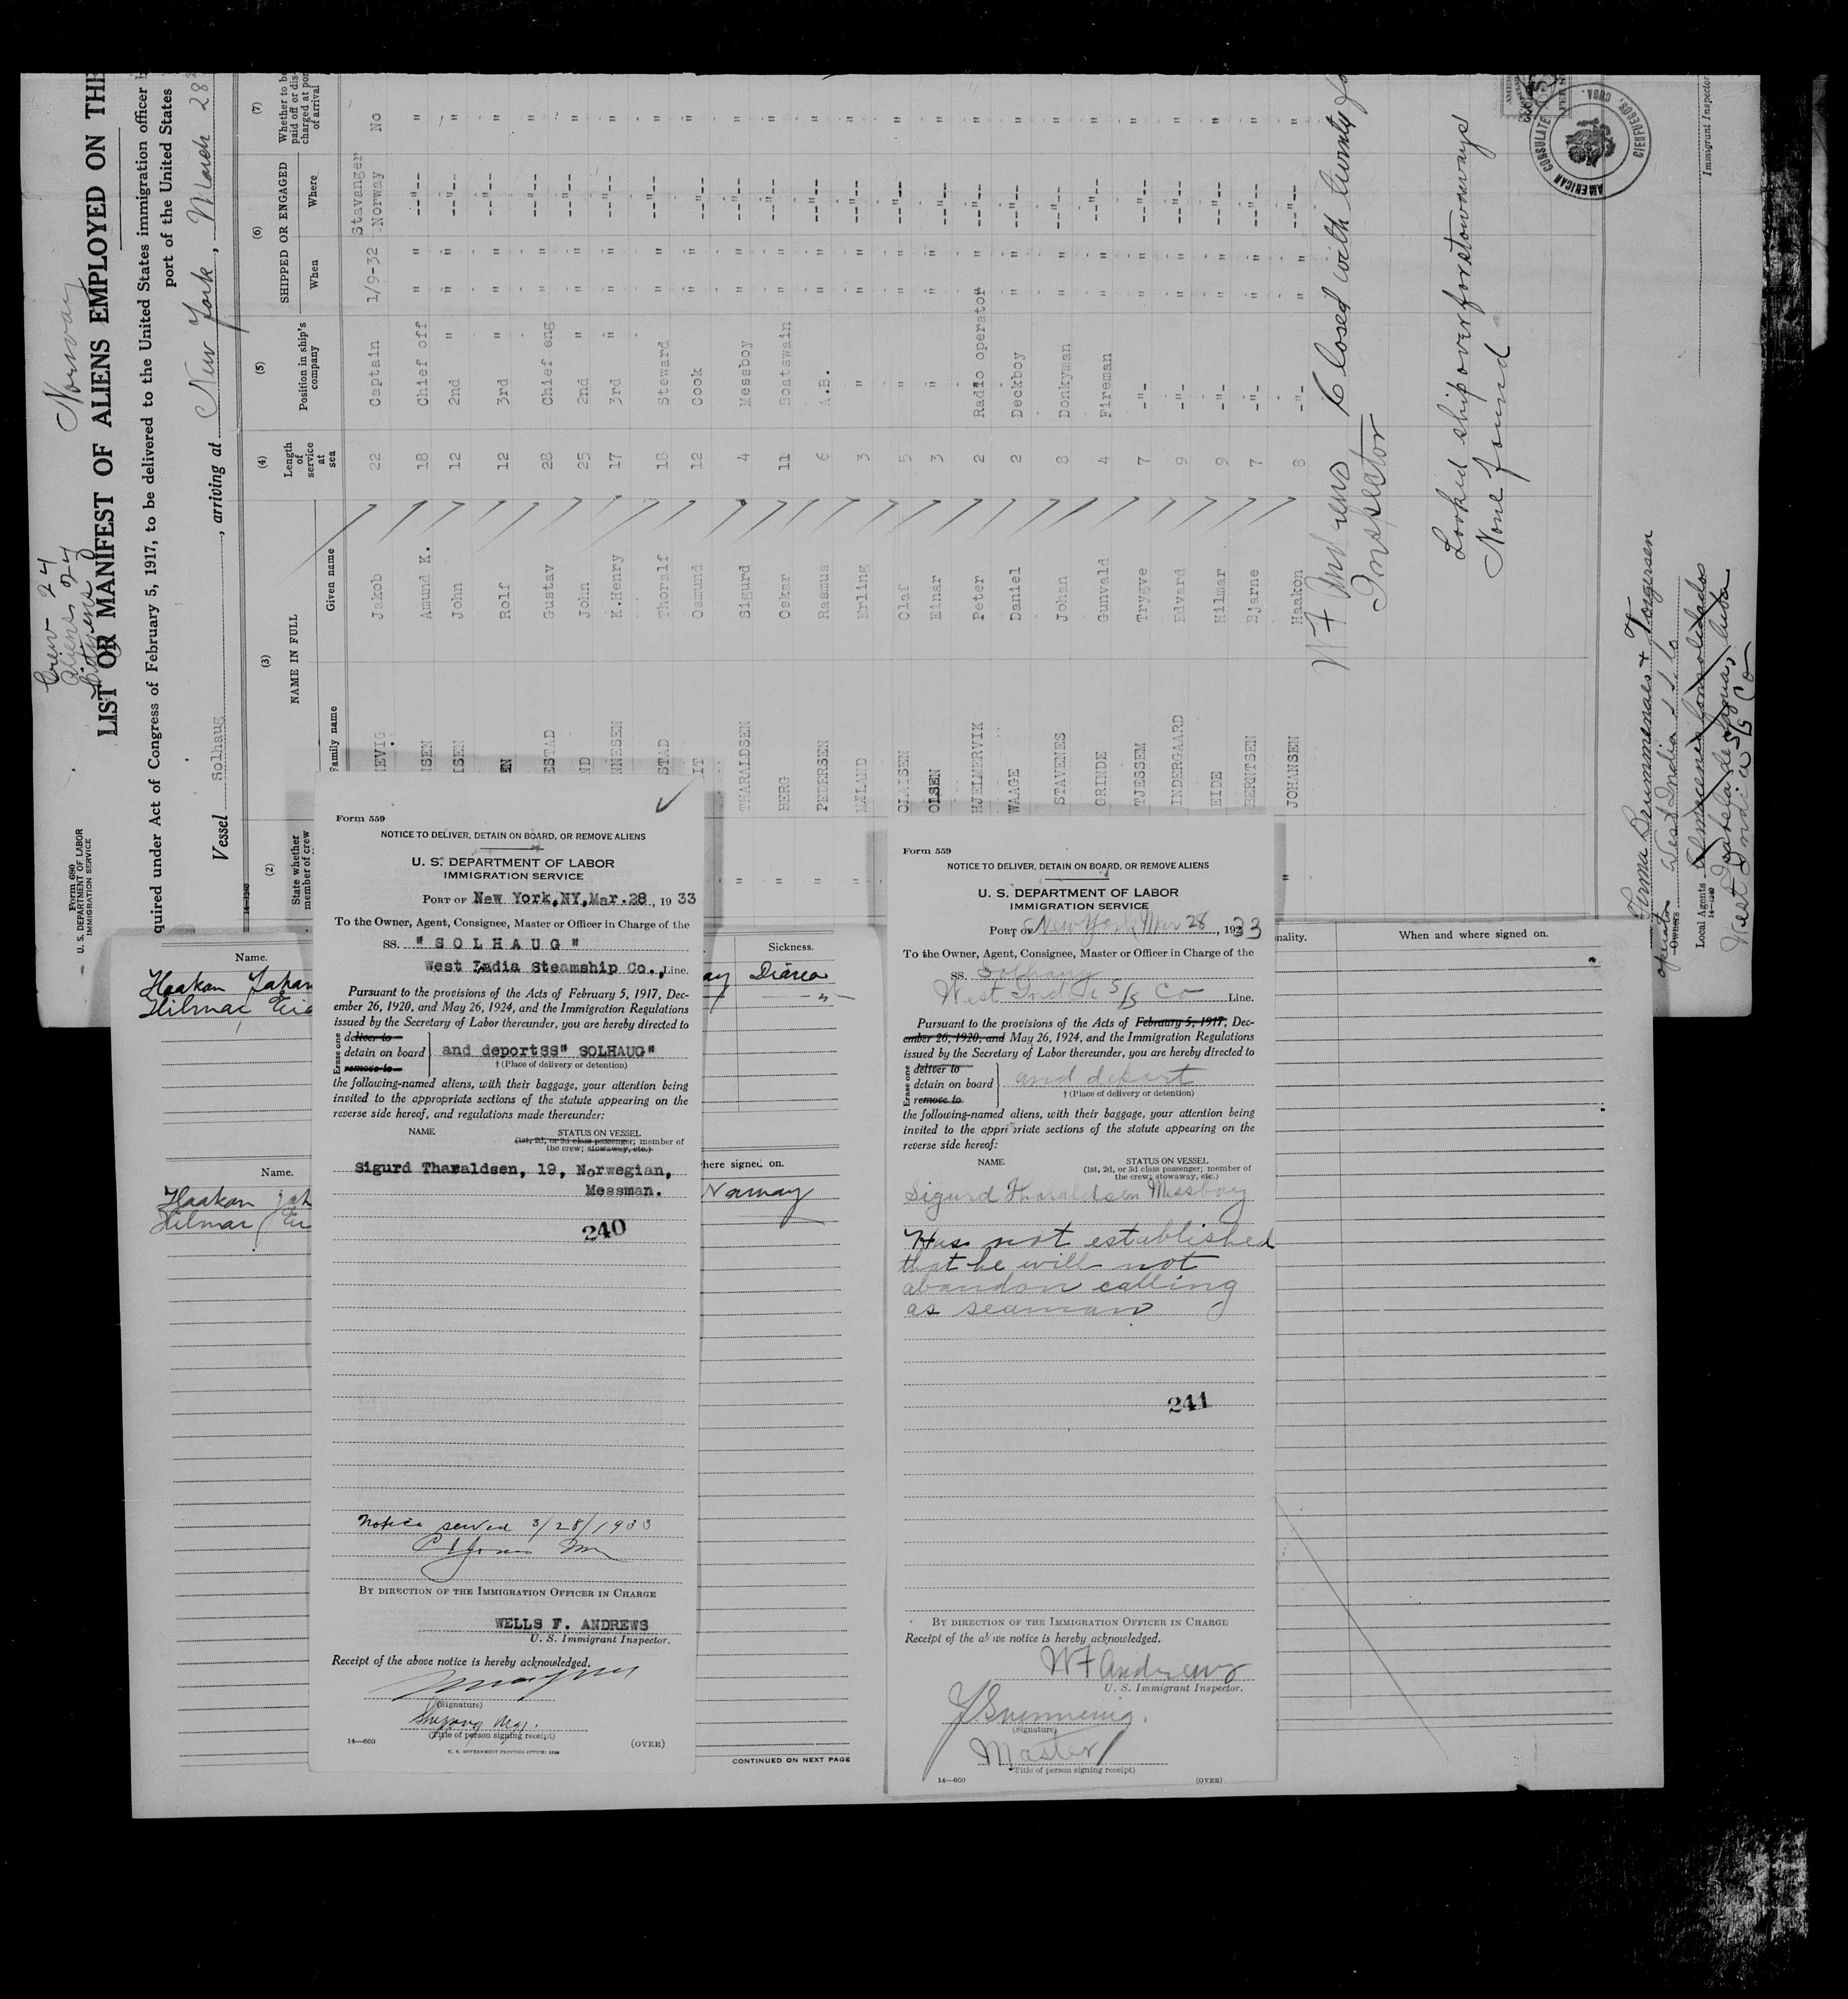 Norway
Crew 24
Aliens 24
Citizens 0
LIST OR MANIFEST OF ALIENS EMPLOYED ON THE
quired under Act of Congress of February 5, 1917, to be delivered to the United States immigration officer b
port of the United States
Vessel Solhaug, arriving at New York, March 28
Form 680
U. S. DEPARTMENT OF LABOR
IMMIGRATION SERVICE
14-1240
(2) (3) (4) (5) (6) (7)
State whether member of crew
NAME IN FULL
Family name Given name
Length of service at sea
Position in ship's company
SHIPPED OR ENGAGED
When Where
Whether to be paid off or discharged at port of arrival
NEVIG Jakob 22 Captain 1/9-32 Stavanger Norway No
NSEN Amund K. 18 Chief off " " --"-- "
ISEN John 12 2nd " " " --"-- "
EN Rolf 12 3rd " " " --"-- "
ESTAD Gustav 28 Chief eng " " --"-- "
ND John 25 2nd " " " --"-- "
NNESEN K.Henry 17 3rd " " " --"-- "
STAD Thoralf 18 Steward " " --"-- "
IT Osmund 12 Cook " " --"-- "
" THARALDSEN Sigurd 4 Messboy " " --"-- "
" BERG Oskar 11 Boatswain " " --"-- "
" PEDERSEN Rasmus 6 A.B. " " --"-- "
" MÆLAND Erling 3 " " " --"-- "
OLAISEN Olaf 5 " " " --"-- "
OLSEN Einar 3 " " " --"-- "
HJELMERVIK Peter 2 Radio operator " " --"-- "
WAAGE Daniel 2 Deckboy " " --"-- "
STAVENES Johan 8 Donkyman " " --"-- "
GRINDE Gunvald 4 Fireman " " --"-- "
TJESSEM Trygve 7 -"- " " --"-- "
INDERGAARD Edvard 9 -"- " " --"-- "
EIDE Hilmar 9 -"- " " --"-- "
BERNTSEN Bjarne 7 -"- " " --"-- "
" JOHANSEN Haakon 8 -"- " " --"-- "
Closed with twenty fo
W F Andrews
Inspector
Looked ship over for stowaways
None found
AMERICAN CONSULATE
CIENFUEGOS, CUBA.
Immigrant Inspector
Operator
Owners West India S S Co
Local Agents
14-1240
West India S/S Co
Name.
Haakon Johan
Hilmar Eid
Sickness.
Diarea
— " —
Name.
Haakon Joh
Hilmar Ei
here signed on.
Norway
CONTINUED ON NEXT PAGE
nality.
When and where signed on.
Form 559
NOTICE TO DELIVER, DETAIN ON BOARD, OR REMOVE ALIENS
U. S. DEPARTMENT OF LABOR
IMMIGRATION SERVICE
PORT OF New York,NY,Mar.28, 1933
To the Owner, Agent, Consignee, Master or Officer in Charge of the
SS. "SOLHAUG"
West India Steamship Co., Line.
Pursuant to the provisions of the Acts of February 5, 1917, Dec-
ember 26, 1920, and May 26, 1924, and the Immigration Regulations
issued by the Secretary of Labor thereunder, you are hereby directed to
Erase one
deliver to
detain on board and deportSS" SOLHAUG"
remove to
† (Place of delivery or detention)
the following-named aliens, with their baggage, your attention being
invited to the appropriate sections of the statute appearing on the
reverse side hereof, and regulations made thereunder:
NAME STATUS ON VESSEL
(1st, 2d, or 3d class passenger; member of
the crew; stowaway, etc.)
Sigurd Tharaldsen, 19, Norwegian,
Messman.
240
Notice served 3/28/1933
BY DIRECTION OF THE IMMIGRATION OFFICER IN CHARGE
WELLS F. ANDREWS
U. S. Immigrant Inspector.
Receipt of the above notice is hereby acknowledged.
(Signature)
(Title of person signing receipt)
14—660
U. S. GOVERNMENT PRINTING OFFICE:
(OVER)
Form 559
NOTICE TO DELIVER, DETAIN ON BOARD, OR REMOVE ALIENS
U. S. DEPARTMENT OF LABOR
IMMIGRATION SERVICE
PORT OF New York Mar 28, 1933
To the Owner, Agent, Consignee, Master or Officer in Charge of the
SS. Solhaug
West India S/S Co Line.
Pursuant to the provisions of the Acts of February 5, 1917, Dec-
ember 26, 1920, and May 26, 1924, and the Immigration Regulations
issued by the Secretary of Labor thereunder, you are hereby directed to
Erase one
deliver to
detain on board and deport
remove to
† (Place of delivery or detention)
the following-named aliens, with their baggage, your attention being
invited to the appropriate sections of the statute appearing on the
reverse side hereof:
NAME STATUS ON VESSEL
(1st, 2d, or 3d class passenger; member of
the crew; stowaway, etc.)
Sigurd Tharaldsen Messboy
Has not established
that he will not
abandon calling
as seaman
241
BY DIRECTION OF THE IMMIGRATION OFFICER IN CHARGE
Receipt of the above notice is hereby acknowledged.
W F Andrews
U. S. Immigrant Inspector.
(Signature)
Master
(Title of person signing receipt)
14—660
(OVER)